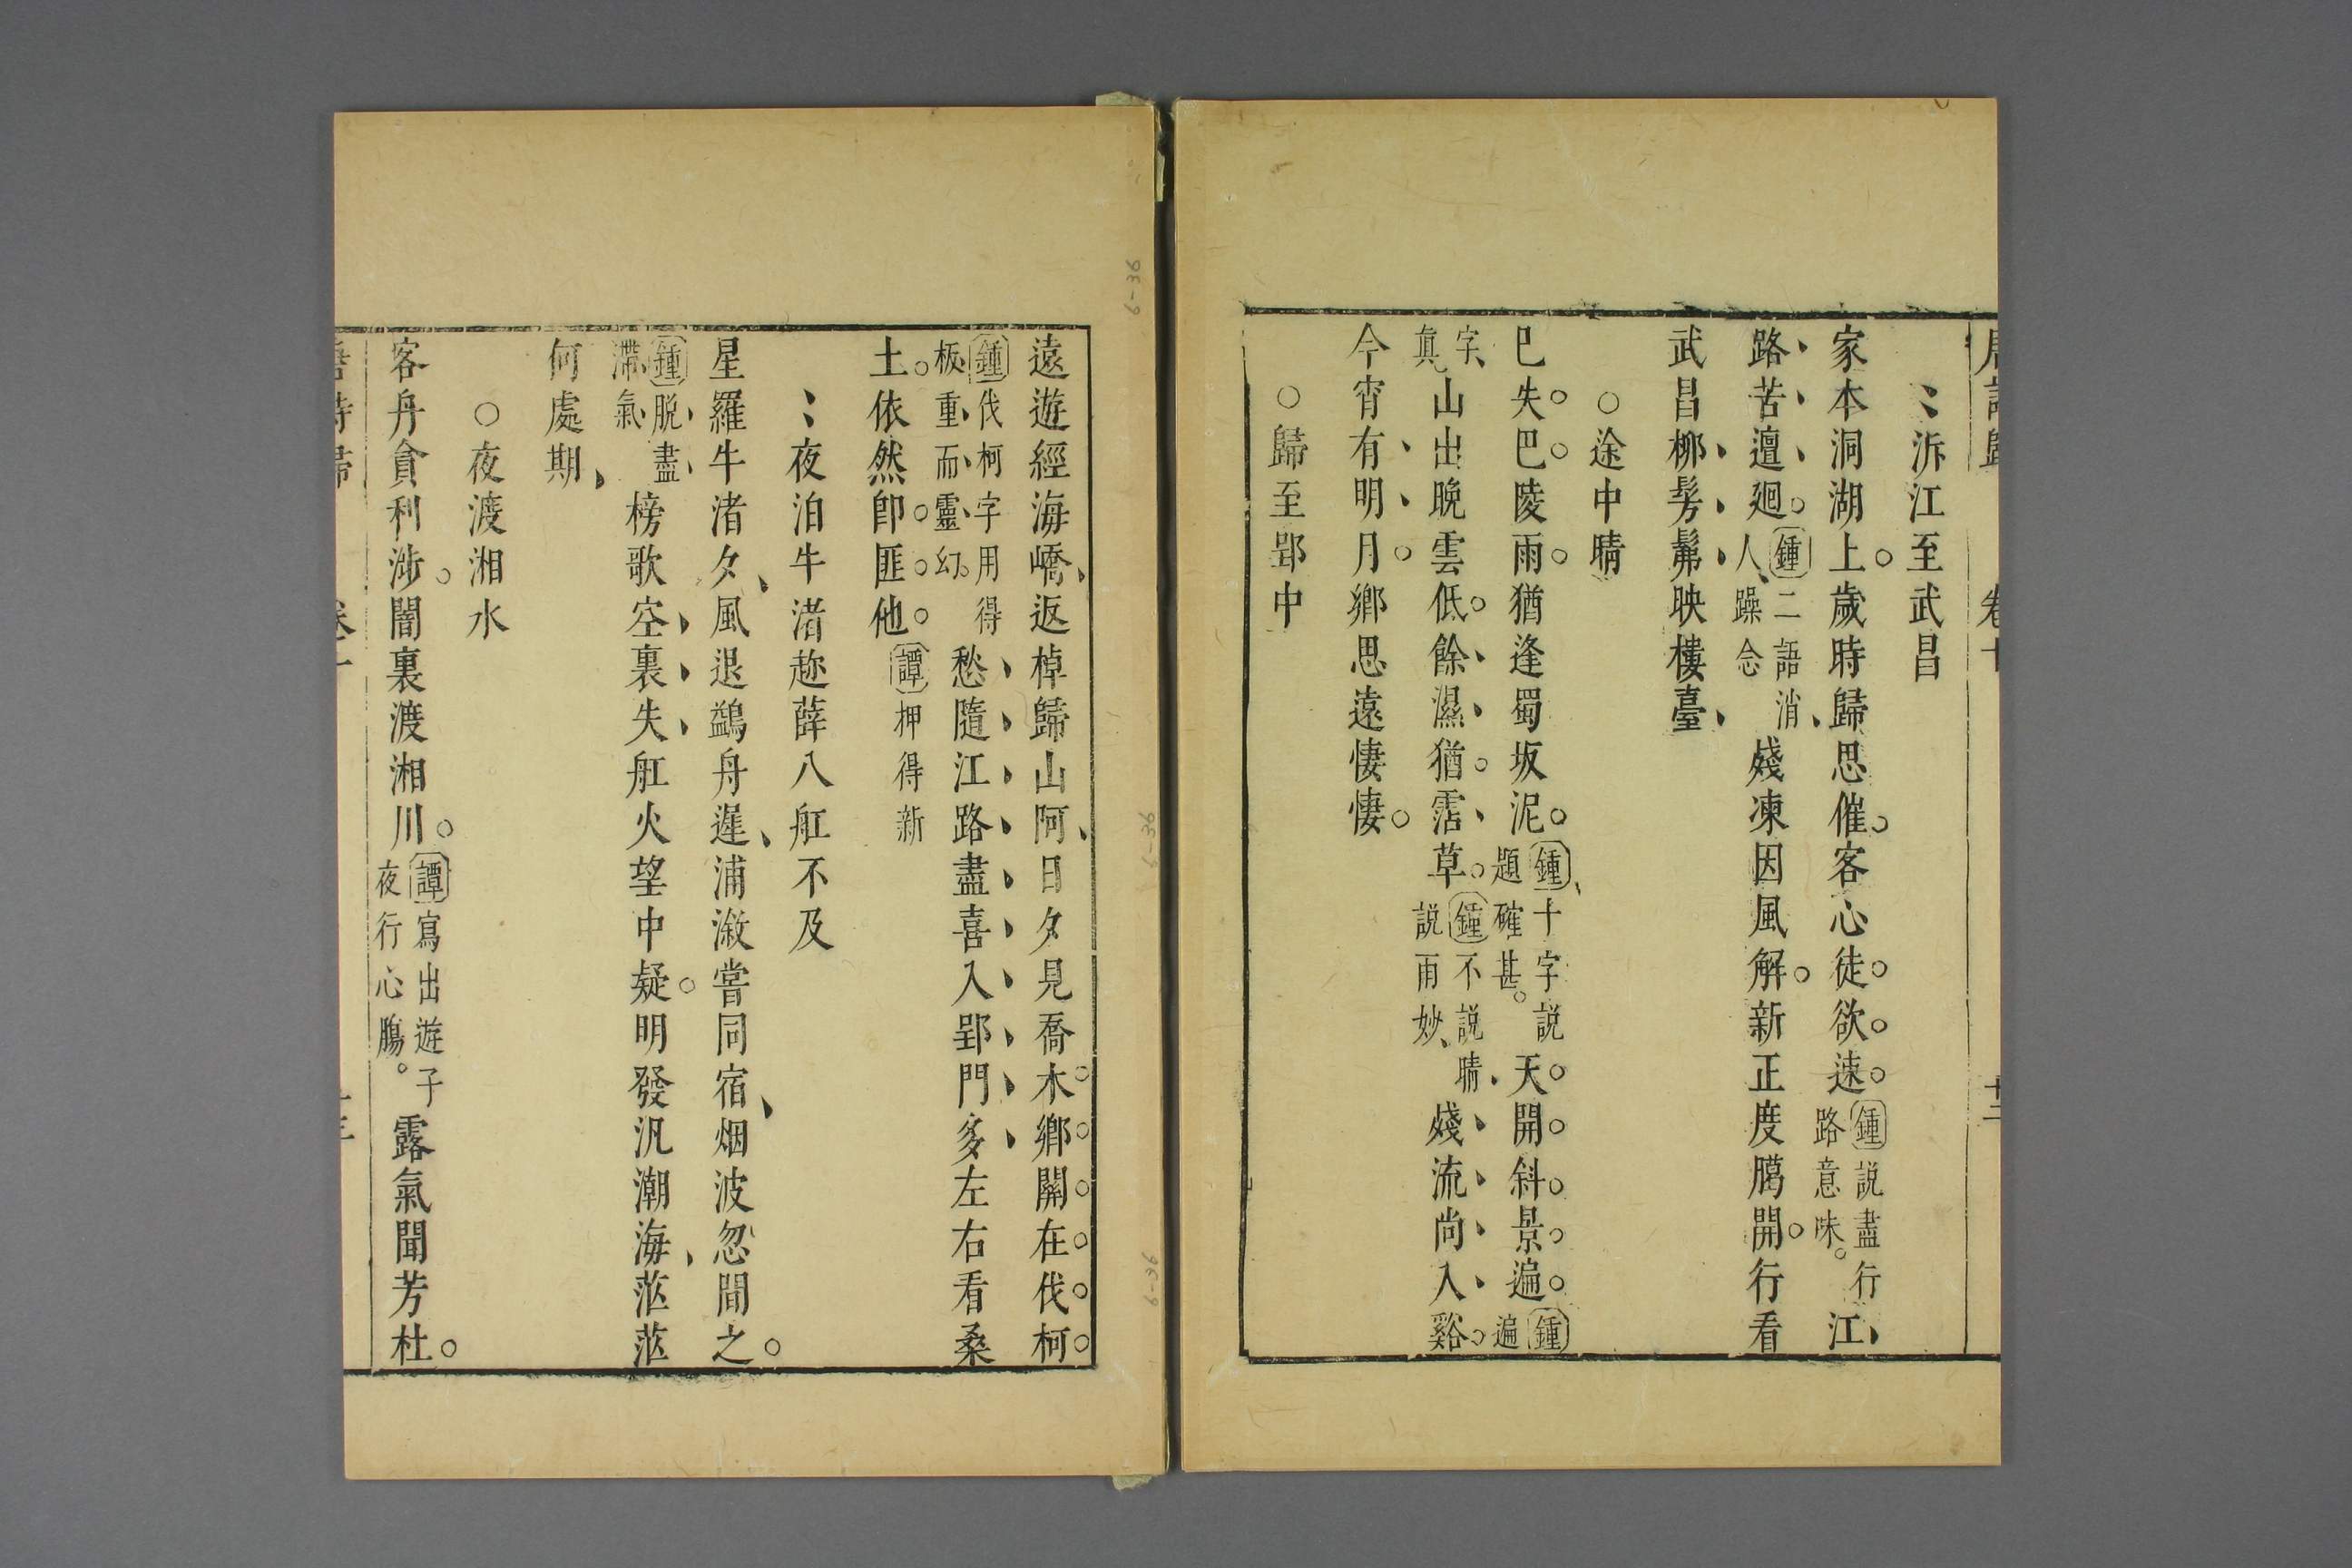 唐詩歸 卷十 十二
泝江至武昌
家本洞湖上歲時歸思催客心徒欲速鍾說盡行路意味江
路苦邅廻鍾二語消人躁念殘凍因風解新正度臈開行看
武昌柳髣髴映樓臺
○途中晴
巳失巴陵雨猶逢蜀坂泥鍾十字說題確甚天開斜景遍鍾遍
字真山出晚雲低餘濕猶霑草鍾不說晴說雨妙殘流尚入谿
今宵有明月鄉思遠悽悽
○歸至郢中
遠遊經海嶠返棹歸山阿日夕見喬木鄉關在伐柯
鍾伐柯字用得板重而靈幻愁隨江路盡喜入郢門多左右看桑
土依然卽匪他譚押得新
夜泊牛渚趂薛八舡不及
星羅牛渚夕風退鷁舟遲浦溆嘗同宿烟波忽間之
鍾脫盡滯氣榜歌空裏失舡火望中疑明發汎潮海茫茫
何處期
○夜渡湘水
客舟貪利涉闇裏渡湘川譚寫出遊子夜行心腸露氣聞芳杜
唐詩歸 卷十 十三